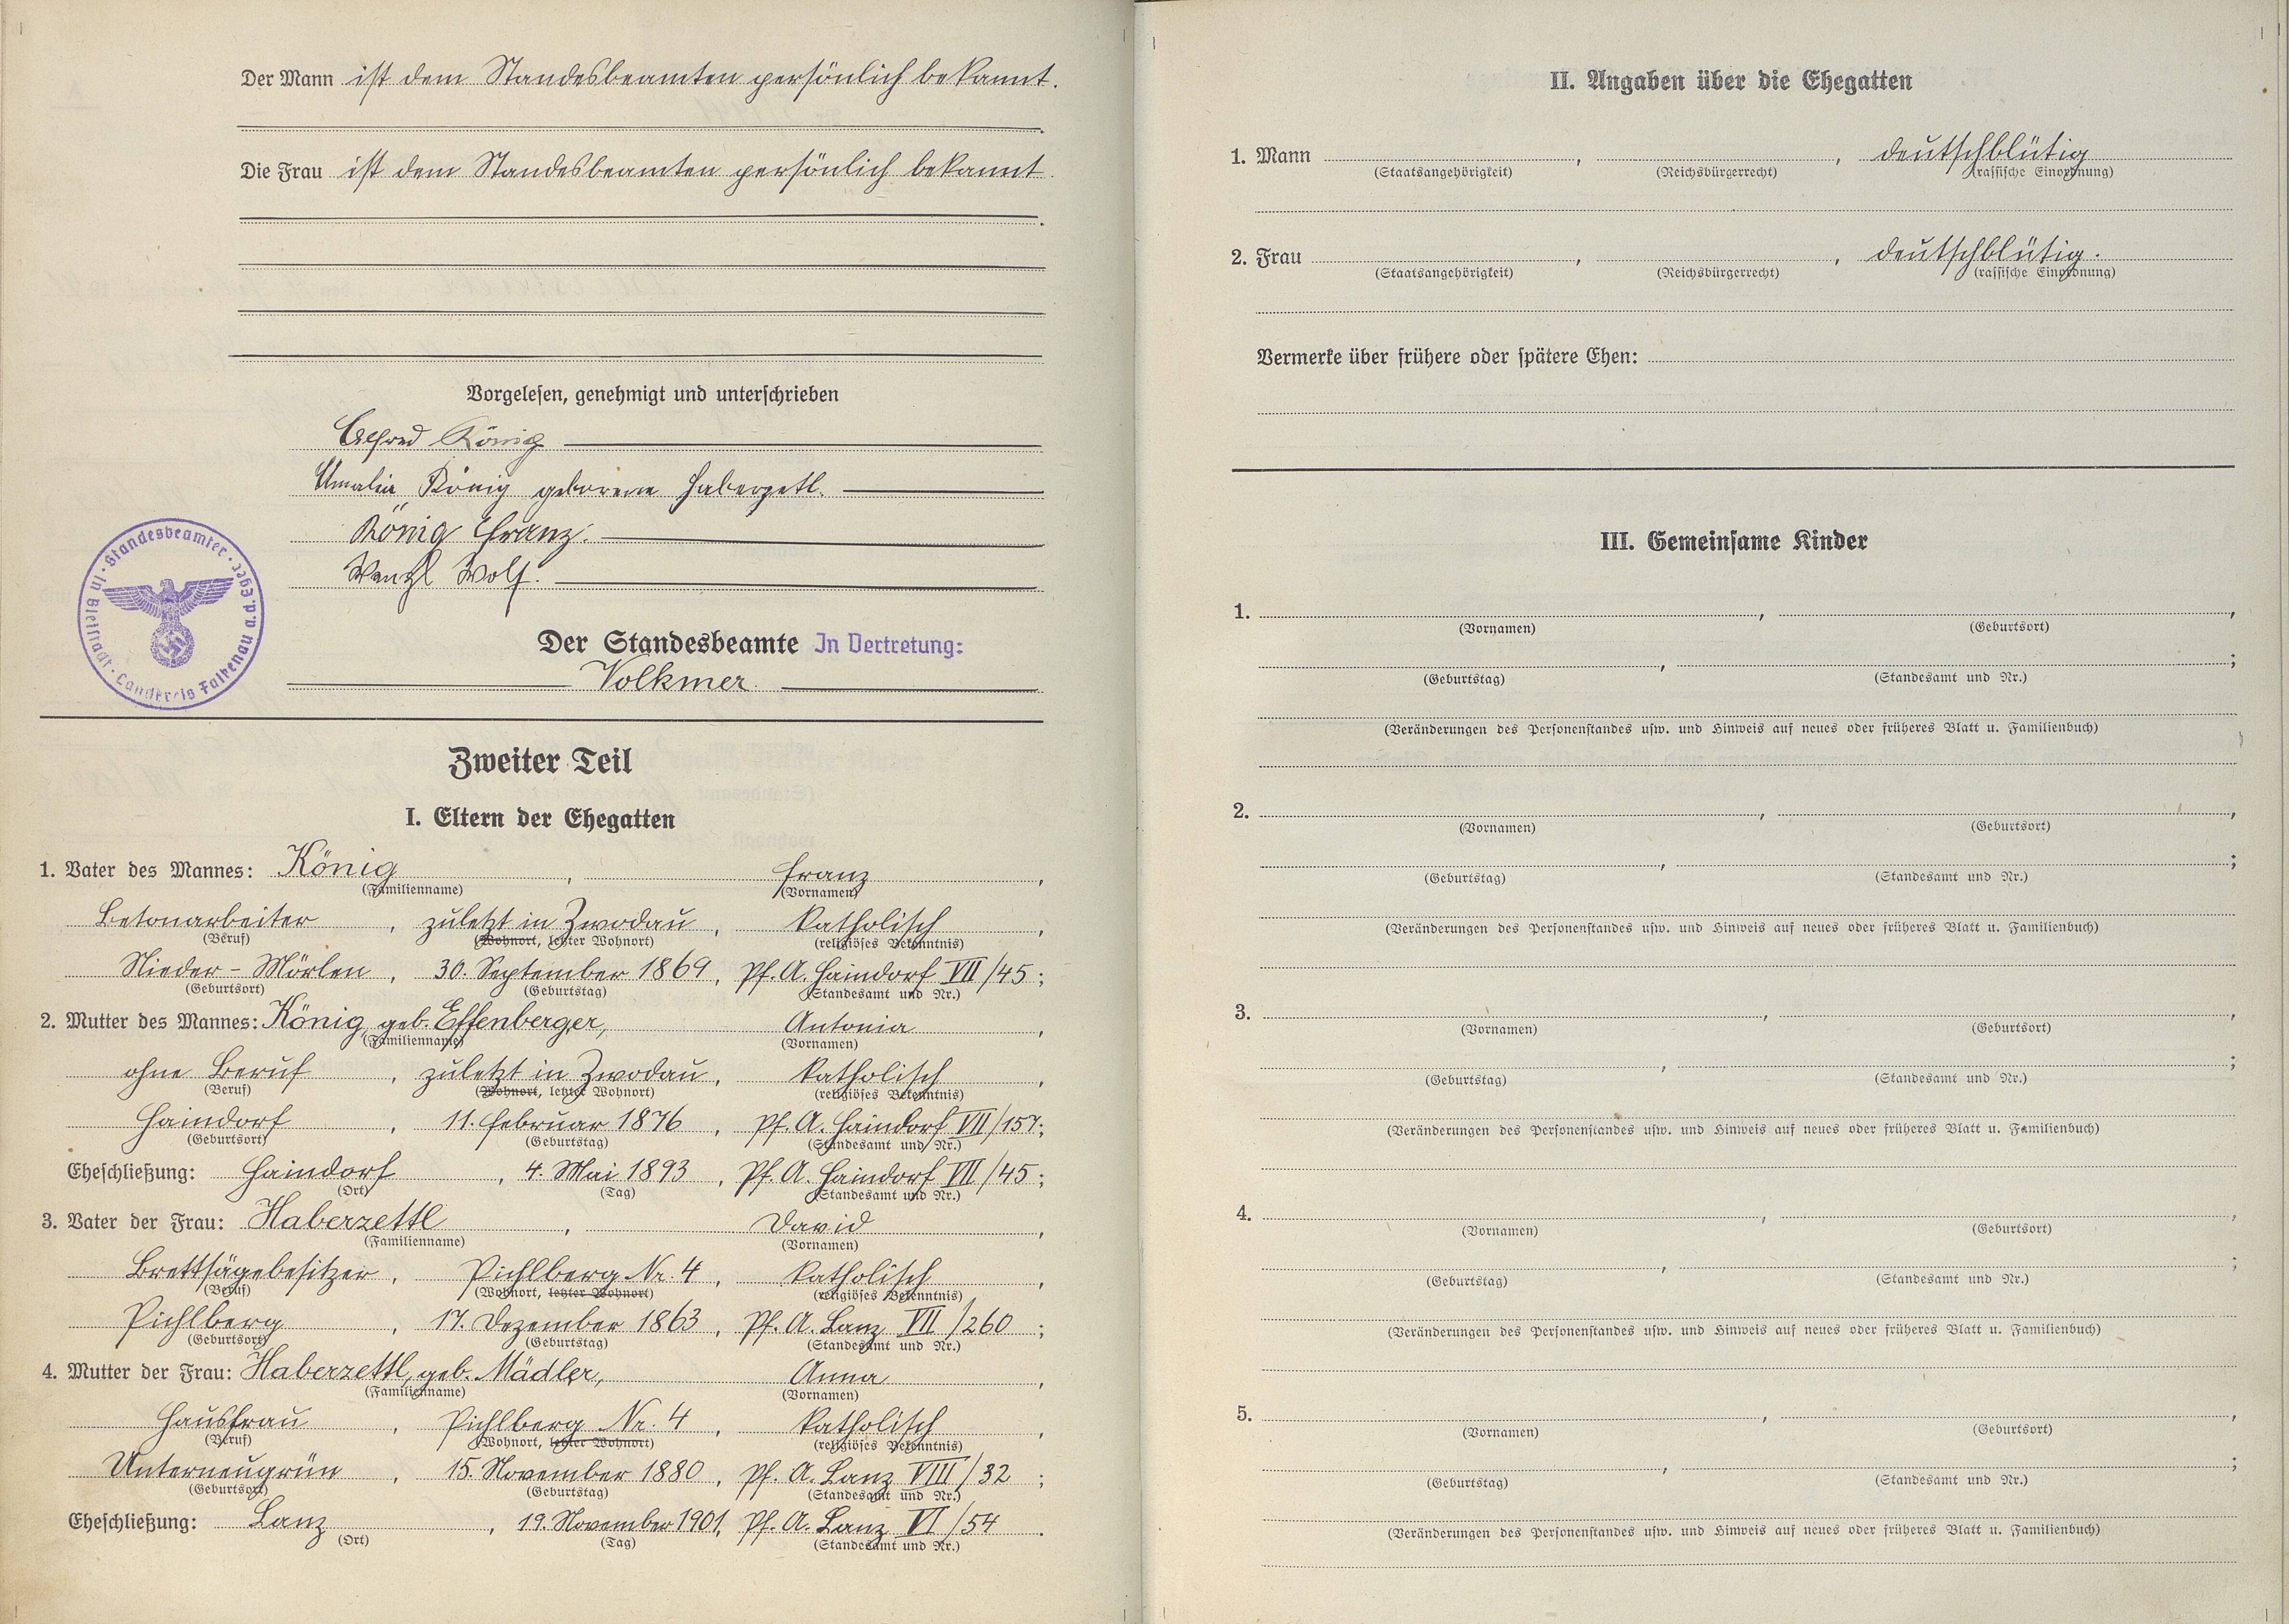 Der Mann ist dem Standesbeamten persönlich bekannt.
Die Frau ist dem Standesbeamten persönlich bekannt.
Vorgelesen, genehmigt und unterschrieben
Alfred König
Amalia König geborene Haberzetl.
König Franz.
Wenzl Wolf.
Standesbeamter in Bleistadt · Landkreis Falkenau a.d. Eger
Der Standesbeamte In Vertretung:
Volkmer.
Zweiter Teil
I. Eltern der Ehegatten
1. Vater des Mannes: König, Franz,
(Familienname) (Vornamen)
Betonarbeiter, zuletzt in Zwodau, katholisch,
(Beruf) (Wohnort, letzter Wohnort) (religiöses Bekenntnis)
Nieder-Mörlen, 30. September 1869, Pf. A. Haindorf VII/45;
(Geburtsort) (Geburtstag) (Standesamt und Nr.)
2. Mutter des Mannes: König, geb. Effenberger, Antonia,
(Familienname) (Vornamen)
ohne Beruf, zuletzt in Zwodau, katholisch,
(Beruf) (Wohnort, letzter Wohnort) (religiöses Bekenntnis)
Haindorf, 11. Februar 1876, Pf. A. Haindorf VII/157;
(Geburtsort) (Geburtstag) (Standesamt und Nr.)
Eheschließung: Haindorf, 4. Mai 1893, Pf. A. Haindorf VII/45;
(Ort) (Tag) (Standesamt und Nr.)
3. Vater der Frau: Haberzettl, David,
(Familienname) (Vornamen)
Brettsägebesitzer, Pichlberg Nr. 4, katholisch,
(Beruf) (Wohnort, letzter Wohnort) (religiöses Bekenntnis)
Pichlberg, 17. Dezember 1863, Pf. A. Lanz VII/260;
(Geburtsort) (Geburtstag) (Standesamt und Nr.)
4. Mutter der Frau: Haberzettl, geb. Mädler, Anna,
(Familienname) (Vornamen)
Hausfrau, Pichlberg Nr. 4, katholisch,
(Beruf) (Wohnort, letzter Wohnort) (religiöses Bekenntnis)
Unterneugrün, 15. November 1880, Pf. A. Lanz VIII/32;
(Geburtsort) (Geburtstag) (Standesamt und Nr.)
Eheschließung: Lanz, 19. November 1901, Pf. A. Lanz VI/54.
(Ort) (Tag) (Standesamt und Nr.)
II. Angaben über die Ehegatten
1. Mann , , deutschblütig
(Staatsangehörigkeit) (Reichsbürgerrecht) (rassische Einordnung)
2. Frau , , deutschblütig.
(Staatsangehörigkeit) (Reichsbürgerrecht) (rassische Einordnung)
Vermerke über frühere oder spätere Ehen:
III. Gemeinsame Kinder
1. , ,
(Vornamen) (Geburtsort)
, ;
(Geburtstag) (Standesamt und Nr.)
(Veränderungen des Personenstandes usw. und Hinweis auf neues oder früheres Blatt u. Familienbuch)
2. , ,
(Vornamen) (Geburtsort)
, ;
(Geburtstag) (Standesamt und Nr.)
(Veränderungen des Personenstandes usw. und Hinweis auf neues oder früheres Blatt u. Familienbuch)
3. , ,
(Vornamen) (Geburtsort)
, ;
(Geburtstag) (Standesamt und Nr.)
(Veränderungen des Personenstandes usw. und Hinweis auf neues oder früheres Blatt u. Familienbuch)
4. , ,
(Vornamen) (Geburtsort)
, ;
(Geburtstag) (Standesamt und Nr.)
(Veränderungen des Personenstandes usw. und Hinweis auf neues oder früheres Blatt u. Familienbuch)
5. , ,
(Vornamen) (Geburtsort)
, ;
(Geburtstag) (Standesamt und Nr.)
(Veränderungen des Personenstandes usw. und Hinweis auf neues oder früheres Blatt u. Familienbuch)